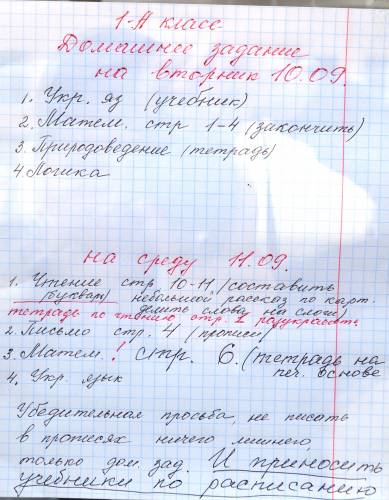 1-А класс
Домашнее задание
на вторник 10.09.
1. Укр. яз (учебник)
2. Матем. стр 1-4 (закончить)
3. Природоведение (тетрадь)
4 Логика
на среду 11.09.
1. Чтение стр 10-11 (составить
(букварь) небольшой рассказ по карт.
делить слова на слоги)
тетрадь по чтению стр. 1 разукрасить
2. Письмо стр. 4 (прописи)
3. Матем.! стр. 6. (тетрадь на
печ. основе
4. Укр. язык
Убедительная просьба, не писать
в прописях ничего лишнего,
только дом. зад. И приносить
учебники по расписанию